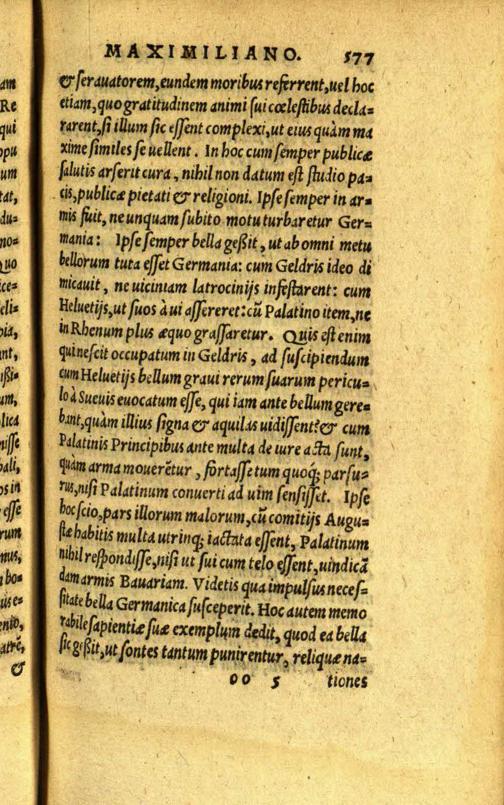 am
Re
qui
opu
um
tat,
du=
mo=
Quo
ice=
eli=
bia,
nt,
ißi=
um,
lica
nisse
bali,
os in
esse
rum
mus,
bo=
use=
enio,
atrẽ,
&
MAXIMILIANO. 577
& seruatorem, eundem moribus referrent, uel hoc
etiam, quo gratitudinem animi sui cœlestibus decla=
rarent, si illum sic essent complexi, ut eius quàm ma
xime similes se uellent. In hoc cum semper publicæ
salutis arserit cura, nihil non datum est studio pa=
cis, publicæ pietati & religioni. Ipse semper in ar=
mis fuit, ne unquam subito motu turbaretur Ger=
mania: Ipse semper bella geßit, ut ab omni metu
bellorum tuta esset Germania: cum Geldris ideo di
micauit, ne uiciniam latrocinijs infestarent: cum
Heluetijs, ut suos à ui assereret: cũ Palatino item, ne
in Rhenum plus æquo grassaretur. Quis est enim
qui nescit occupatum in Geldris, ad suscipiendum
cum Heluetijs bellum graui rerum suarum pericu=
lo à Sueuis euocatum esse, qui iam ante bellum gere=
bant, quàm illius signa & aquilas uidissent? & cum
Palatinis Principibus ante multa de iure acta sunt,
quàm arma mouerẽtur, fortasse tum quoq; parsu=
rus, nisi Palatinum conuerti ad uim sensisset. Ipse
hoc scio, pars illorum malorum, cũ comitijs Augu=
stæ habitis multa utrinq; iactata essent, Palatinum
nihil respondisse, nisi ut sui cum telo essent, uindicã
dam armis Bauariam. Videtis qua impulsus neces=
sitate bella Germanica susceperit. Hoc autem memo
rabile sapientiæ suæ exemplum dedit, quod ea bella
sic geßit, ut sontes tantum punirentur, reliquæ na=
oo 5 tiones